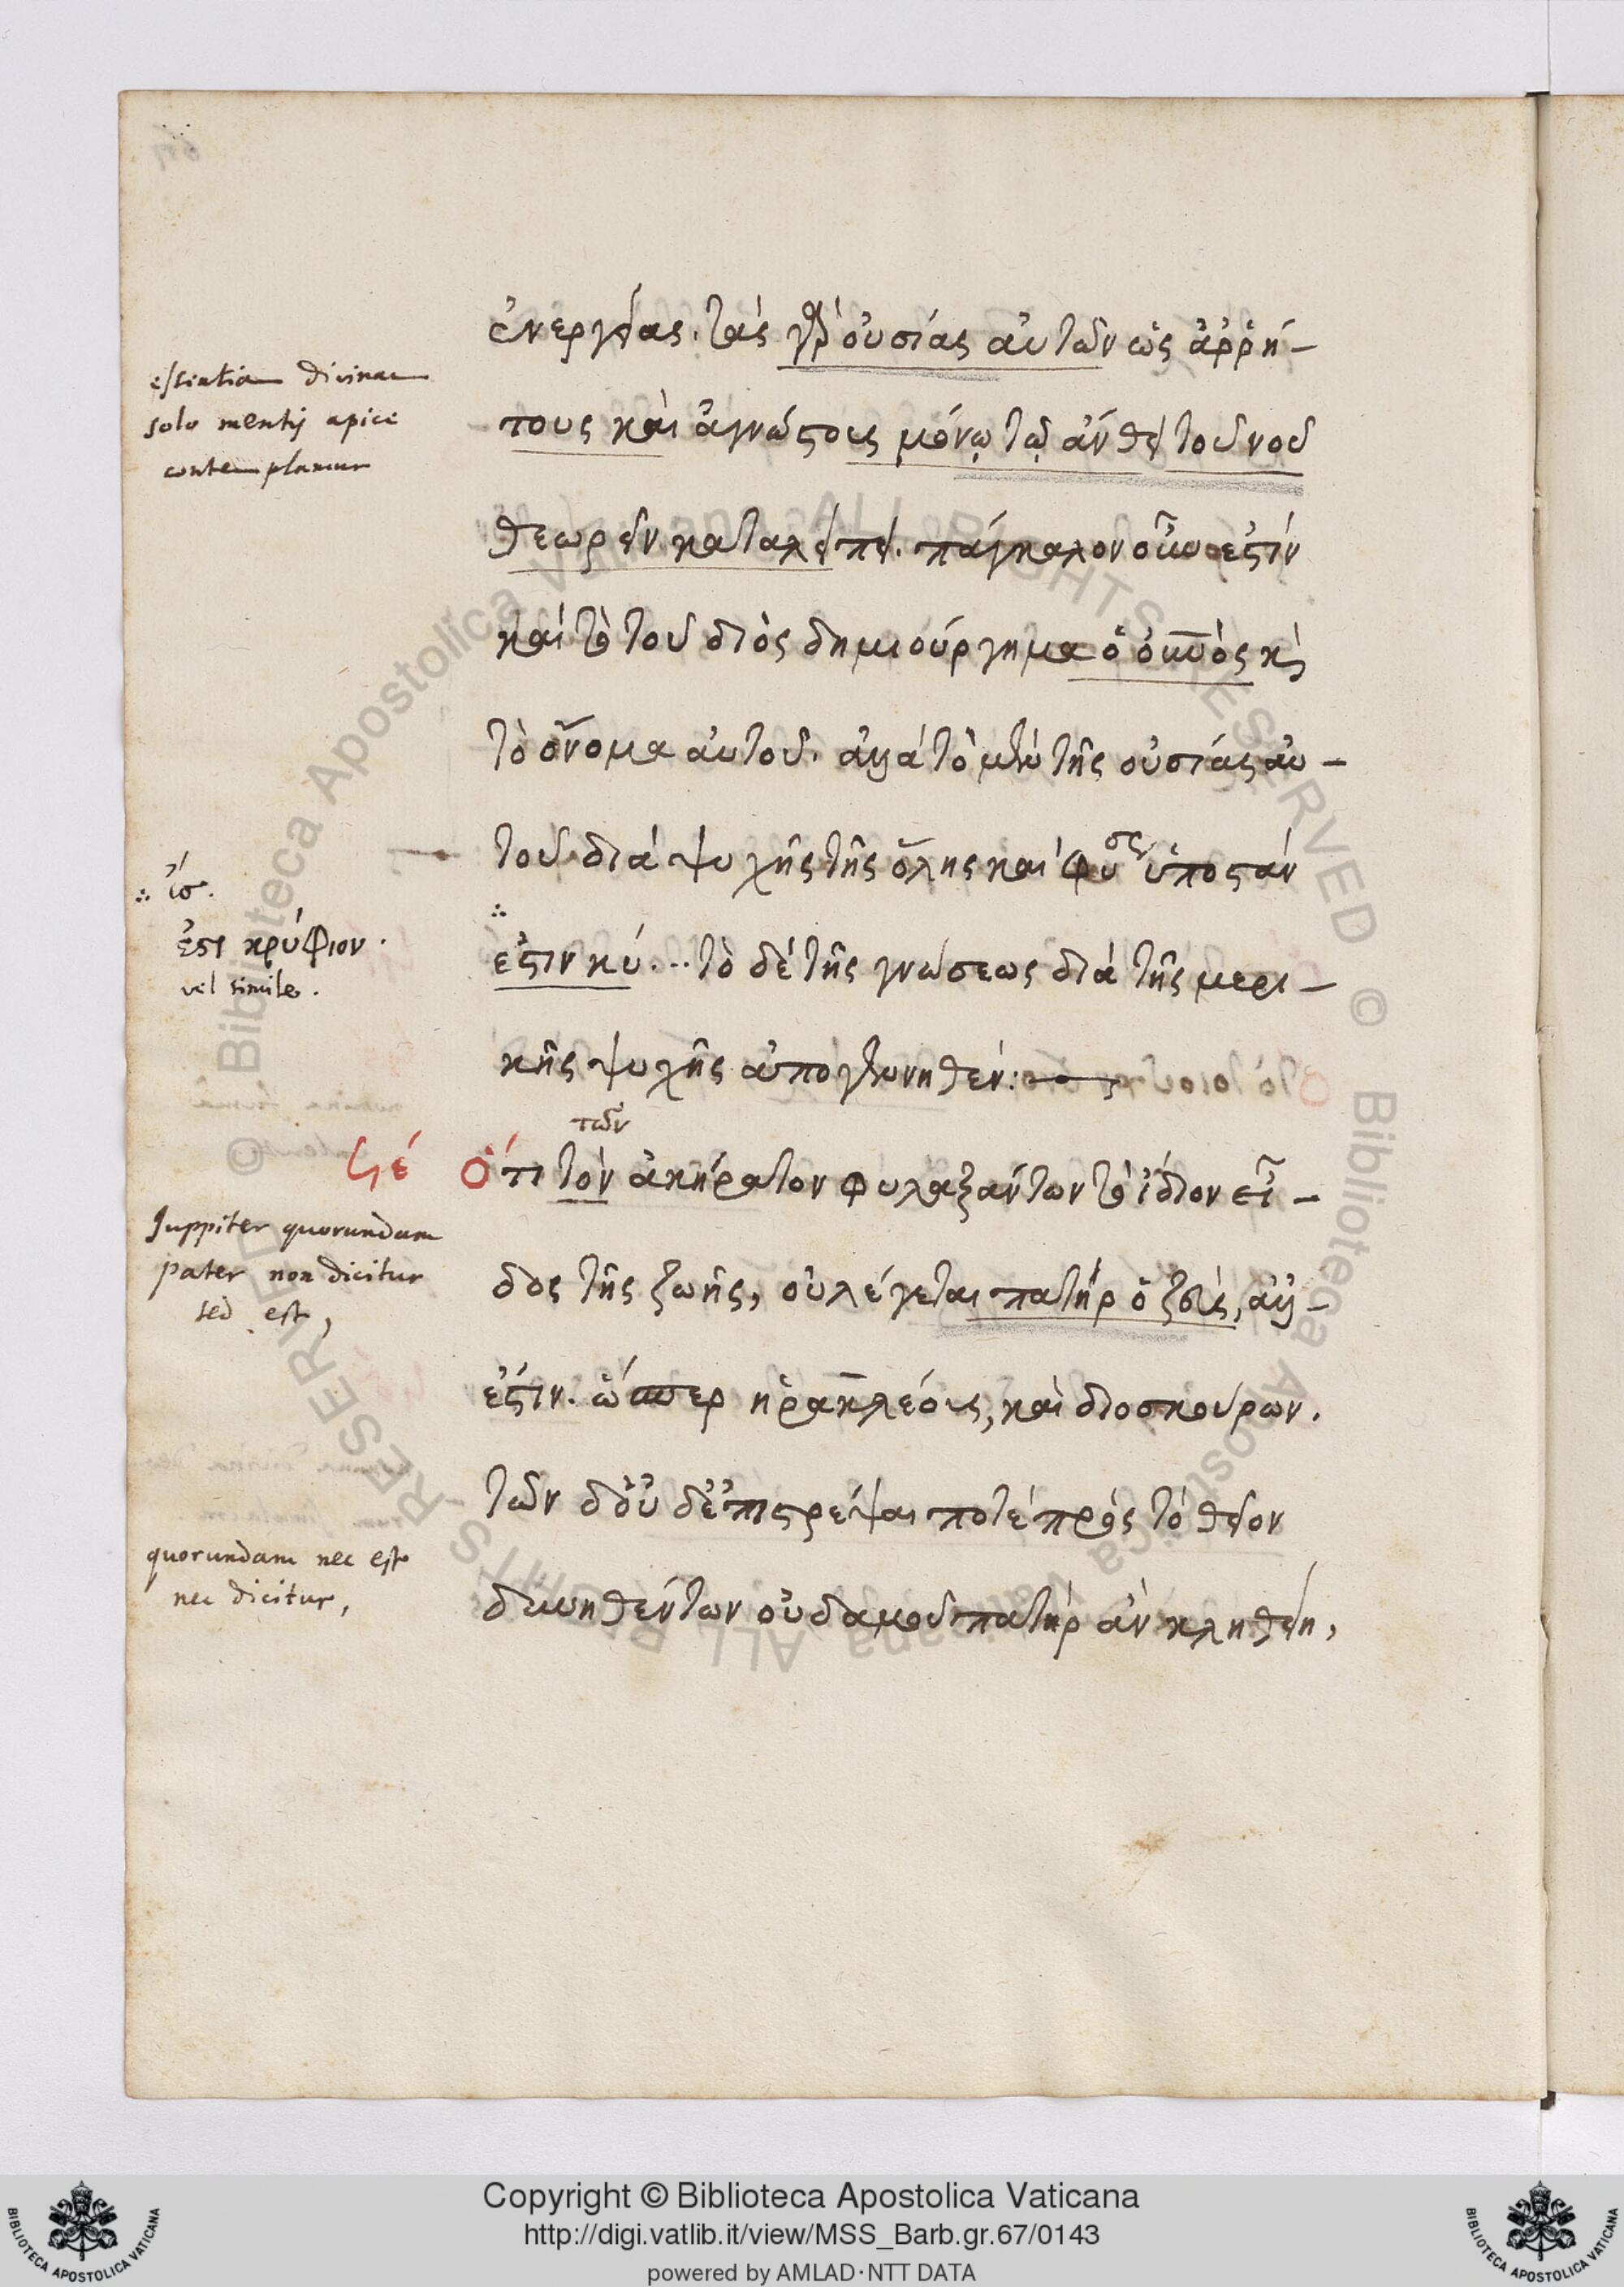 ἐνεργείας. τὰς γὰρ οὐσίας αὐτῶν ὡς ἀῤῥή-
τους καὶ ἀγνώστους μόνῳ τῷ ἄνθει τοῦ νοῦ
θεωρεῖν καταλείπει. πάγκαλον οὖν ἐστίν
καὶ τὸ τοῦ διὸς δημιούργημα ὁ οὐνὸς κὶ
τὸ ὄνομα αὐτοῦ. ἀλλὰ τὸ μὲν τῆς οὐσίας αὐ-
τοῦ διὰ ψυχῆς τῆς ὅλης καὶ φύσει ὑποστάν
ἐστιν κύ... τὸ δὲ τῆς γνώσεως διὰ τῆς μερι-
κῆς ψυχῆς ἀπογεννηθέν:
των
ϟέ Ὅτι τὸν ἀκήρατον φυλαξάντων τὸ ἴδιον εἶ-
δος τῆς ζωῆς, οὐ λέγεται πατὴρ ὁ ζεύς, ἀλλ-
ἐστιν. ὥσπερ ἡρακλέους, καὶ διοσκούρων.
τῶν δ' οὐδ' ἐπιστρέψαι ποτὲ πρὸς τὸ θεῖον
δυνηθέντων οὐδαμοῦ πατὴρ ἂν κληθείη,
essentiam divinam
solo mentis apice
contemplamur
∴ ἴσ.
ἐστι κρύφιον.
vel simile.
Juppiter quorundam
pater non dicitur
sed est,
quorundam nec est
nec dicitur,
Copyright © Biblioteca Apostolica Vaticana
http://digi.vatlib.it/view/MSS_Barb.gr.67/0143
powered by AMLAD·NTT DATA
BIBLIOTECA APOSTOLICA VATICANA
BIBLIOTECA APOSTOLICA VATICANA